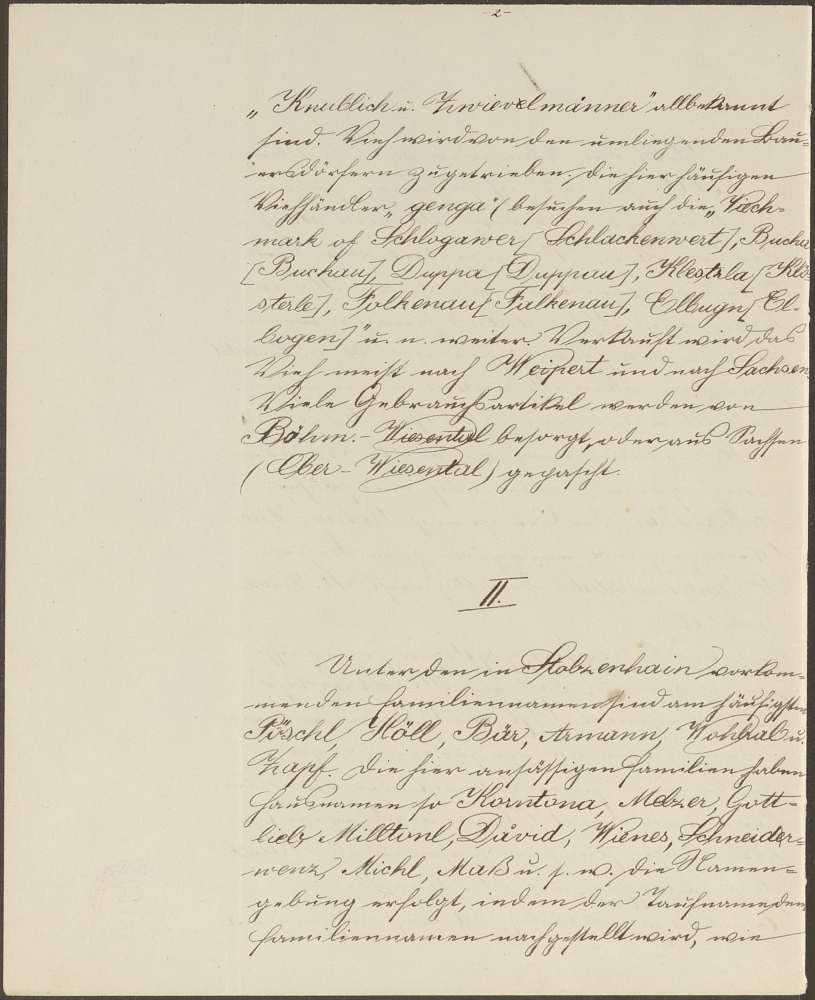 -2-
„Knublich u. Zwievelmånner" allbekannt
sind. Vieh wird von den umliegenden Bau-
ersdörfern zugetrieben. Die hier häufigen
Viehhändler „genga" (besuchen auch die „Viech-
mark of Schlogawer [Schlackenwert], Bucha
[Buchau], Duppa [Duppau], Klestrla [Klö-
sterle], Folkenau [Falkenau], Ellbugn [El-
bogen]" u. n. weiter. Verkauft wird das
Vieh meist nach Weipert und nach Sachsen.
Viele Gebrauchsartikel werden von
Böhm.-Wiesental besorgt, oder aus Sachsen
(Ober-Wiesental) gepascht.
II.
Unter den in Stolzenhain vorkom-
menden Familiennamen sind am häufigsten
Pöschl, Höll, Bär, Armann, Wohlrab u.
Zapf. Die hier ansässigen Familien haben
Hausnamen so Korntona, Melzer, Gott-
lieb, Milltonl, Dåvid, Wienes, Schneider-
wenz, Michl, Maß u. s. w. Die Namen-
gebung erfolgt, indem der Taufname dem
Familiennamen nachgestellt wird, wie